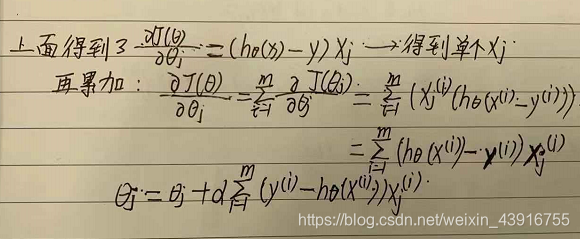 上面得到了 ∂J(θ)/∂θj = (hθ(x)-y) Xj → 得到单个Xj
再累加: ∂J(θ)/∂θj = ∑_{i=1}^{m} ∂J(θj)/∂θj = ∑_{i=1}^{m} (Xj^(i)(hθ(x^(i)-y^(i)))
= ∑_{i=1}^{m} (hθ(x^(i))-y^(i)) Xj^(i)
θj := θj + α∑_{i=1}^{m} (y^(i)-hθ(x^(i)))Xj^(i)
https://blog.csdn.net/weixin_43916755